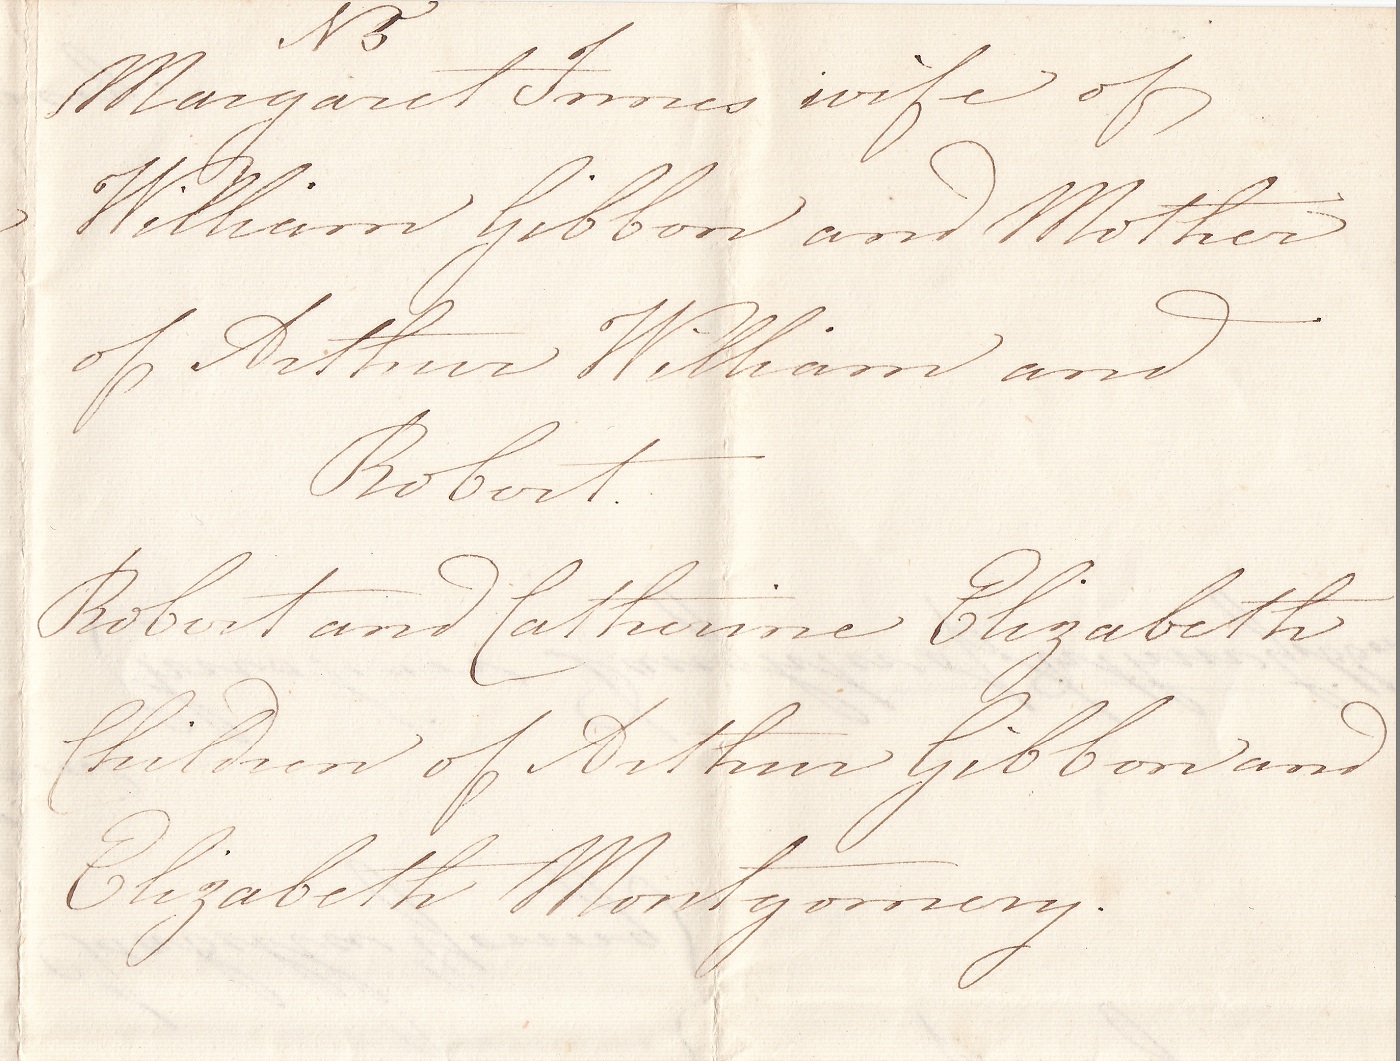 N 5
Margaret Innes wife of
William Gibbon and Mother
of Arthur William and
Robert.
Robert and Catherine Elizabeth
Children of Arthur Gibbon and
Elizabeth Montgomery.